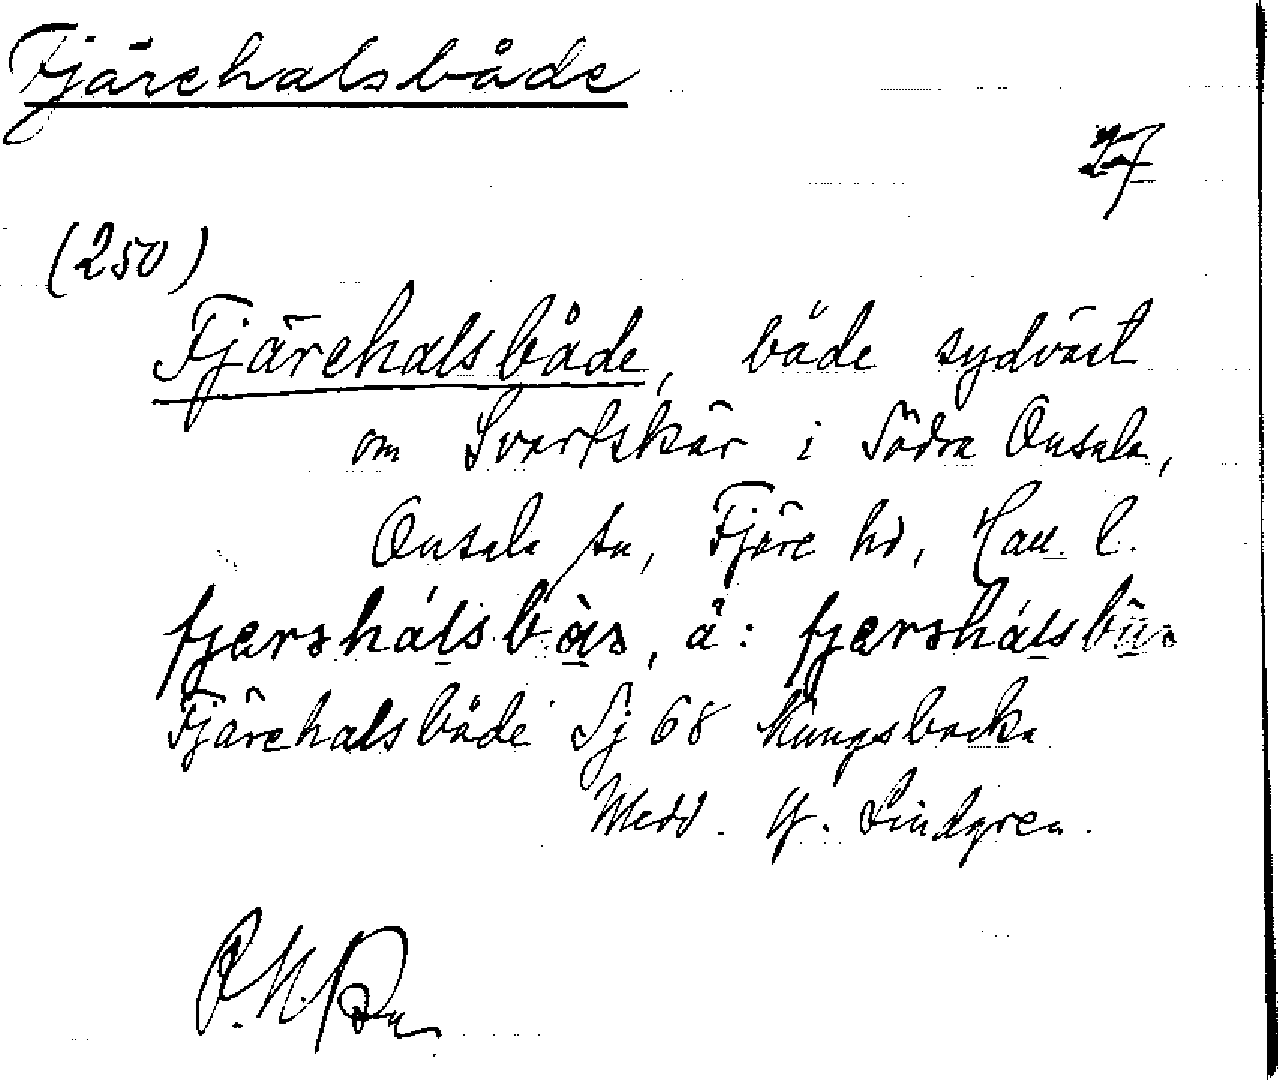 Fjärehalsbåde
27
(250)
Fjärehalsbåde, både sydväst
om Svartskär i Södra Onsala,
Onsala sn, Fjäre hd, Hall. l.
fjærshálsbås, å: fjærshálsbås
Fjärehalsbåde Sj 68 Kungsbacka
Medd. G. Lindgren.